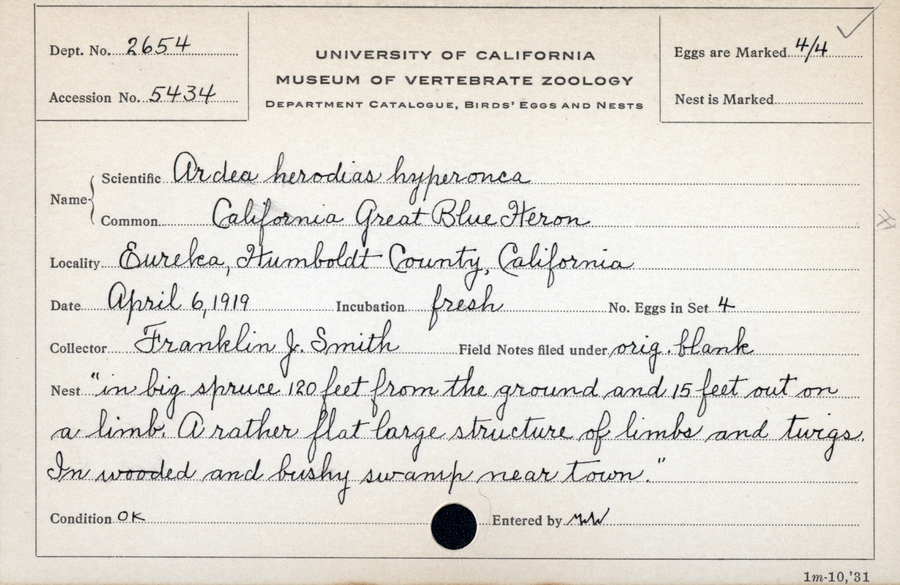 Dept. No. 2654
Accession No. 5434
UNIVERSITY OF CALIFORNIA
MUSEUM OF VERTEBRATE ZOOLOGY
DEPARTMENT CATALOGUE, BIRDS' EGGS AND NESTS
Eggs are Marked 4/4
Nest is Marked
Name
Scientific Ardea herodias hyperonca
Common California Great Blue Heron
Locality Eureka, Humboldt County, California
Date April 6, 1919 Incubation fresh No. Eggs in Set 4
Collector Franklin J. Smith Field Notes filed under orig. blank
Nest "in big spruce 120 feet from the ground and 15 feet out on
a limb. A rather flat large structure of limbs and twigs.
In wooded and bushy swamp near town."
Condition OK Entered by
1m-10,'31